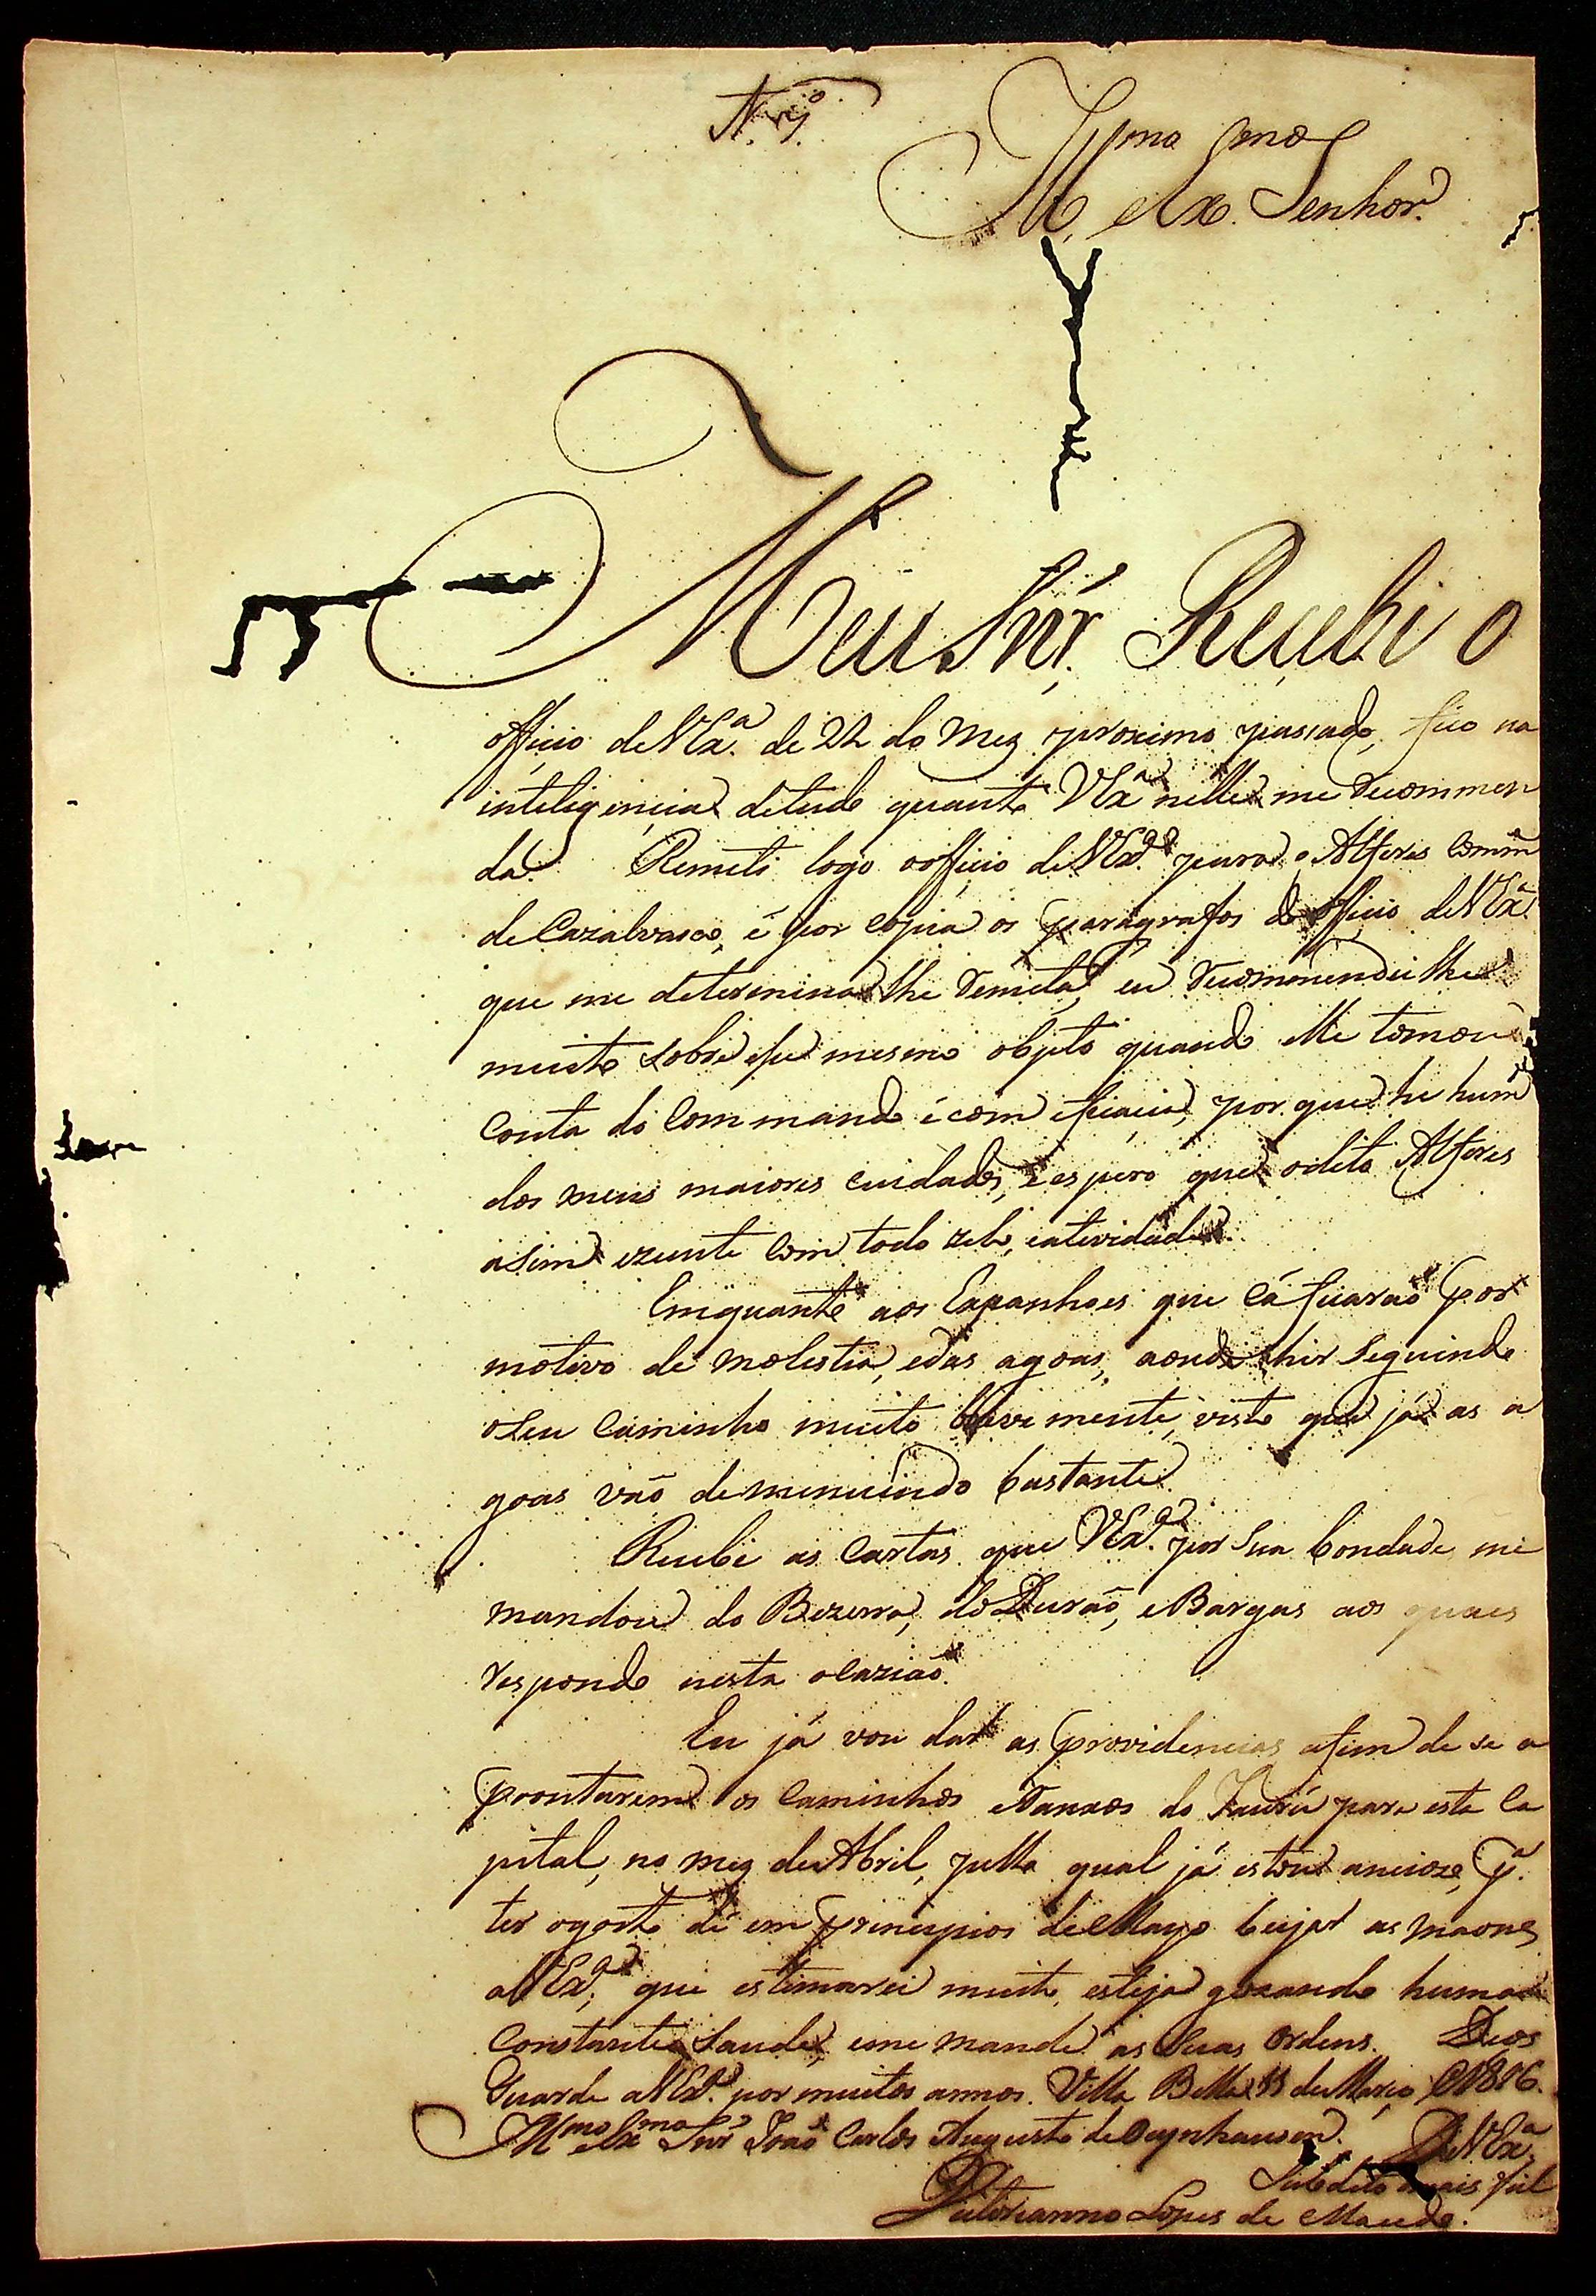 Ill.mo e Ex.mo Senhor.
Meu Snr. Recebi o
officio de VEx.a de 22 do mez proximo passado, fico na
inteligencia de tudo quanto VEx.a nelle me recommen
da. Remeti logo o officio de VEx.a para o Alferes Comm.
de Cazalvasco, é por copia os paragrafos do officio de VEx.a
que me determina lhe remeta, eu recommendei lhe
muito sobre esse mesmo objeto quando elle tomou
conta do Commando é com eficacia, por que he hum
dos meus maiores cuidados, e espero que o dito Alferes
asim ezecute com todo zelo, e atividade.
Emquanto aos Espanhoes que cá ficarão por
motivo de molestia, e das agoas, hir seguindo
o seu caminho muito brevemente, visto que já as a
goas vão demenuindo bastante.
Recebi as cartas que VEx.a por sua bondade me
mandou do Bezerra, do Durão, e Bargas aos quaes
respondo nesta ocazião.
Eu já vou dar as providencias afim de se a
prontarem os caminhos e do Jaurú para esta Ca
pital, no mez de Abril, pello qual já estou ancioso, p.a
ter o gosto de em principios de Mayo beijar as maons
a VEx.a, que estimarei muito esteja gozando huma
constante saude, e me mande as suas ordens. Deos
Guarde a VEx.a por muitos annos. Villa Bella 11 de Março de 1816.
Ill.mo e Ex.mo Snr. João Carlos Augusto de Oeynhausen. De VEx.a
Subdito mais fiel
Victorianno Lopes de Macedo.